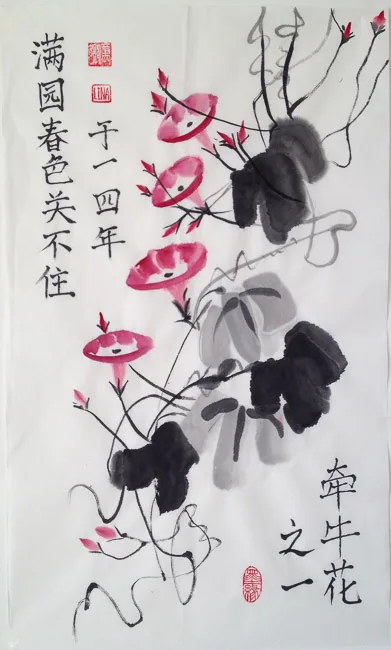 满园春色关不住
于一四年
牵牛花
之一